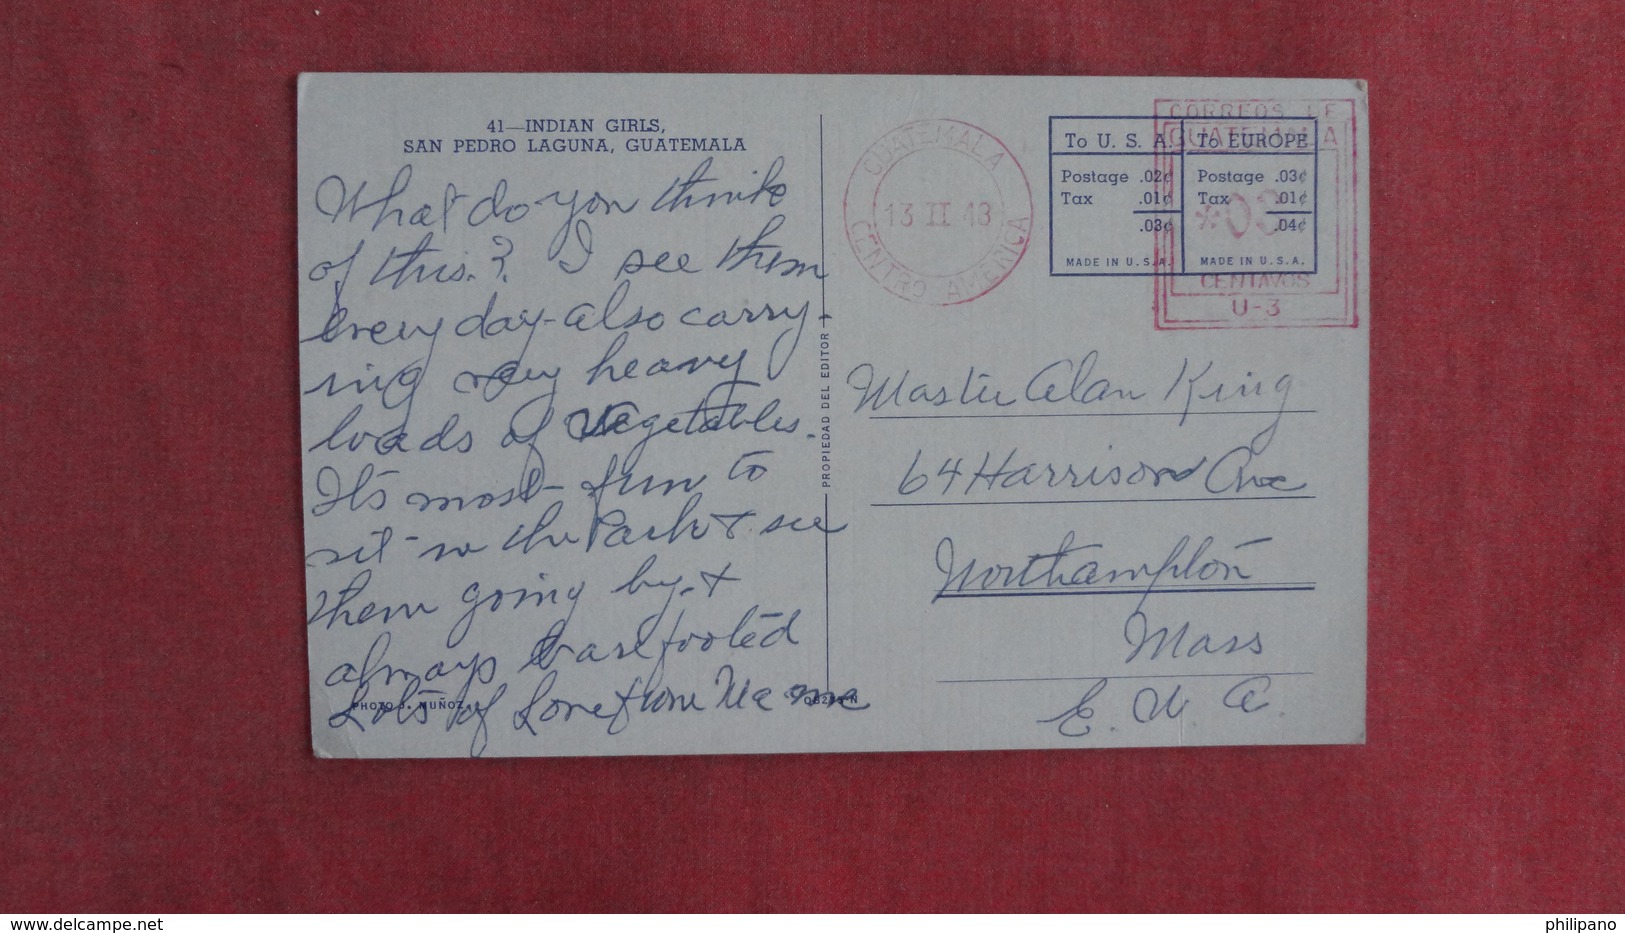 41—INDIAN GIRLS,
SAN PEDRO LAGUNA, GUATEMALA
What do you think
of this? I see them
every day-also carry-
ing very heavy
loads of vegetables.
It's most fun to
sit in the Park & see
them going by &
always barefooted
Lots of Love from
PHOTO J. MUÑOZ.
PROPIEDAD DEL EDITOR
GUATEMALA
13 II 48
CENTRO AMERICA
To U. S. A.
Postage .02¢
Tax .01¢
.03¢
MADE IN U.S.A.
To EUROPE
Postage .03¢
Tax .01¢
.04¢
MADE IN U.S.A.
CORREOS DE
GUATEMALA
*03
CENTAVOS
U-3
Master Alan King
64 Harrison Ave
Northampton
Mass
E. U. A.
http://www.delcampe.net
philipano